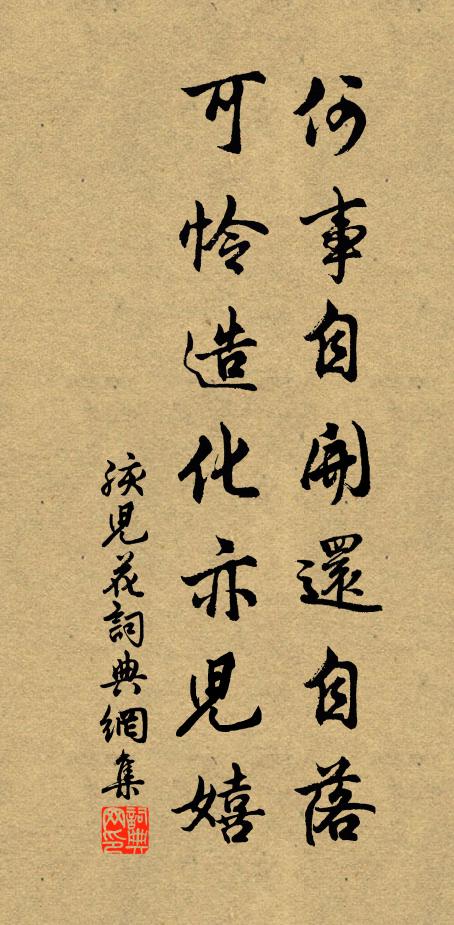 何事自開還自落
可憐造化亦兒嬉
孩兒花詞典網集
詞典网印